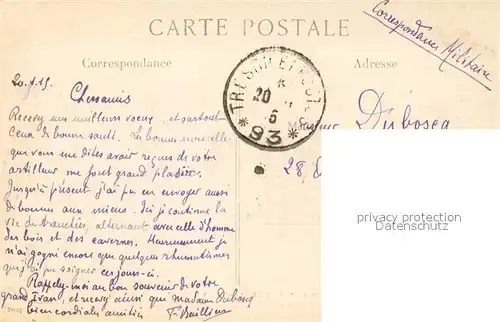 CARTE POSTALE
Correspondance Militaire
Correspondance
Adresse
TRESOR ET POSTES
20
5
* 93 *
Monsieur Duboscq
28,
20.1.15.
Chers amis
Recevez mes meilleurs voeux, et surtout
ceux de bonne santé. Les bonnes nouvelles
que vous me dites avoir reçues de votre
artilleur me font grand plaisir.
Jusqu'à présent j'ai pu en envoyer aussi
de bonnes aux miens. Ici je continue la
vie de tranchées, alternant avec celle d'homme
des bois et des cavernes. Heureusement je
n'ai gagné encore que quelques rhumatismes
que j'ai pu soigner ces jours-ci.
Rappelez-moi au bon souvenir de votre
grand Ivan, et recevez ainsi que Madame Duboscq
mes bien cordiales amitiés
privacy protection
Datenschutz